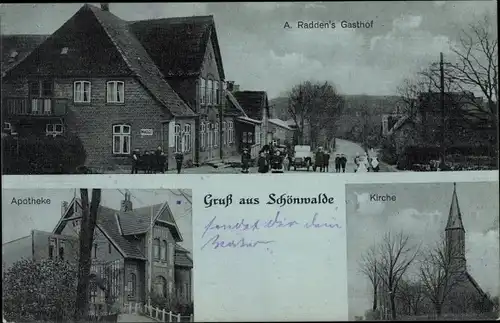 A. Radden's Gasthof
Apotheke
Gruß aus Schönwalde
Kirche
sendet dir dein